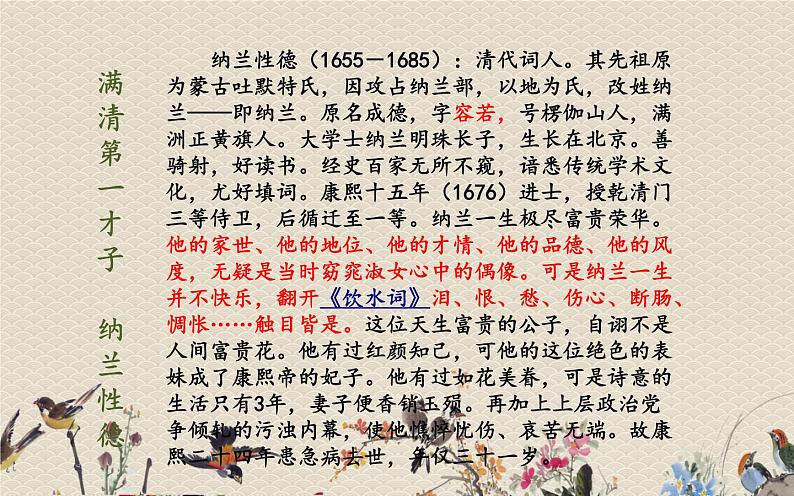 满清第一才子 纳兰性德
纳兰性德（1655－1685）：清代词人。其先祖原
为蒙古吐默特氏，因攻占纳兰部，以地为氏，改姓纳
兰——即纳兰。原名成德，字容若，号楞伽山人，满
洲正黄旗人。大学士纳兰明珠长子，生在北京。善
骑射，好读书。经史百家无所不窥，谙悉传统学术文
化，尤好填词。康熙十五年（1676）进士，授乾清门
三等侍卫，后循迁至一等。纳兰一生极尽富贵荣华。
他的家世、他的地位、他的才情、他的品德、他的风
度，无疑是当时窈窕淑女心中的偶像。可是纳兰一生
并不快乐，翻开《饮水词》泪、恨、愁、伤心、断肠、
惆怅……触目皆是。这位天生富贵的公子，自诩不是
人间富贵花。他有过红颜知己，可他的这位绝色的表
妹成了康熙帝的妃子。他有过如花美眷，可是诗意的
生活只有3年，妻子便香销玉殒。再加上上层政治党
争倾轧的污浊内幕，使他憔悴忧伤、哀苦无端。故康
熙二十四年患急病去世，年仅三十一岁。